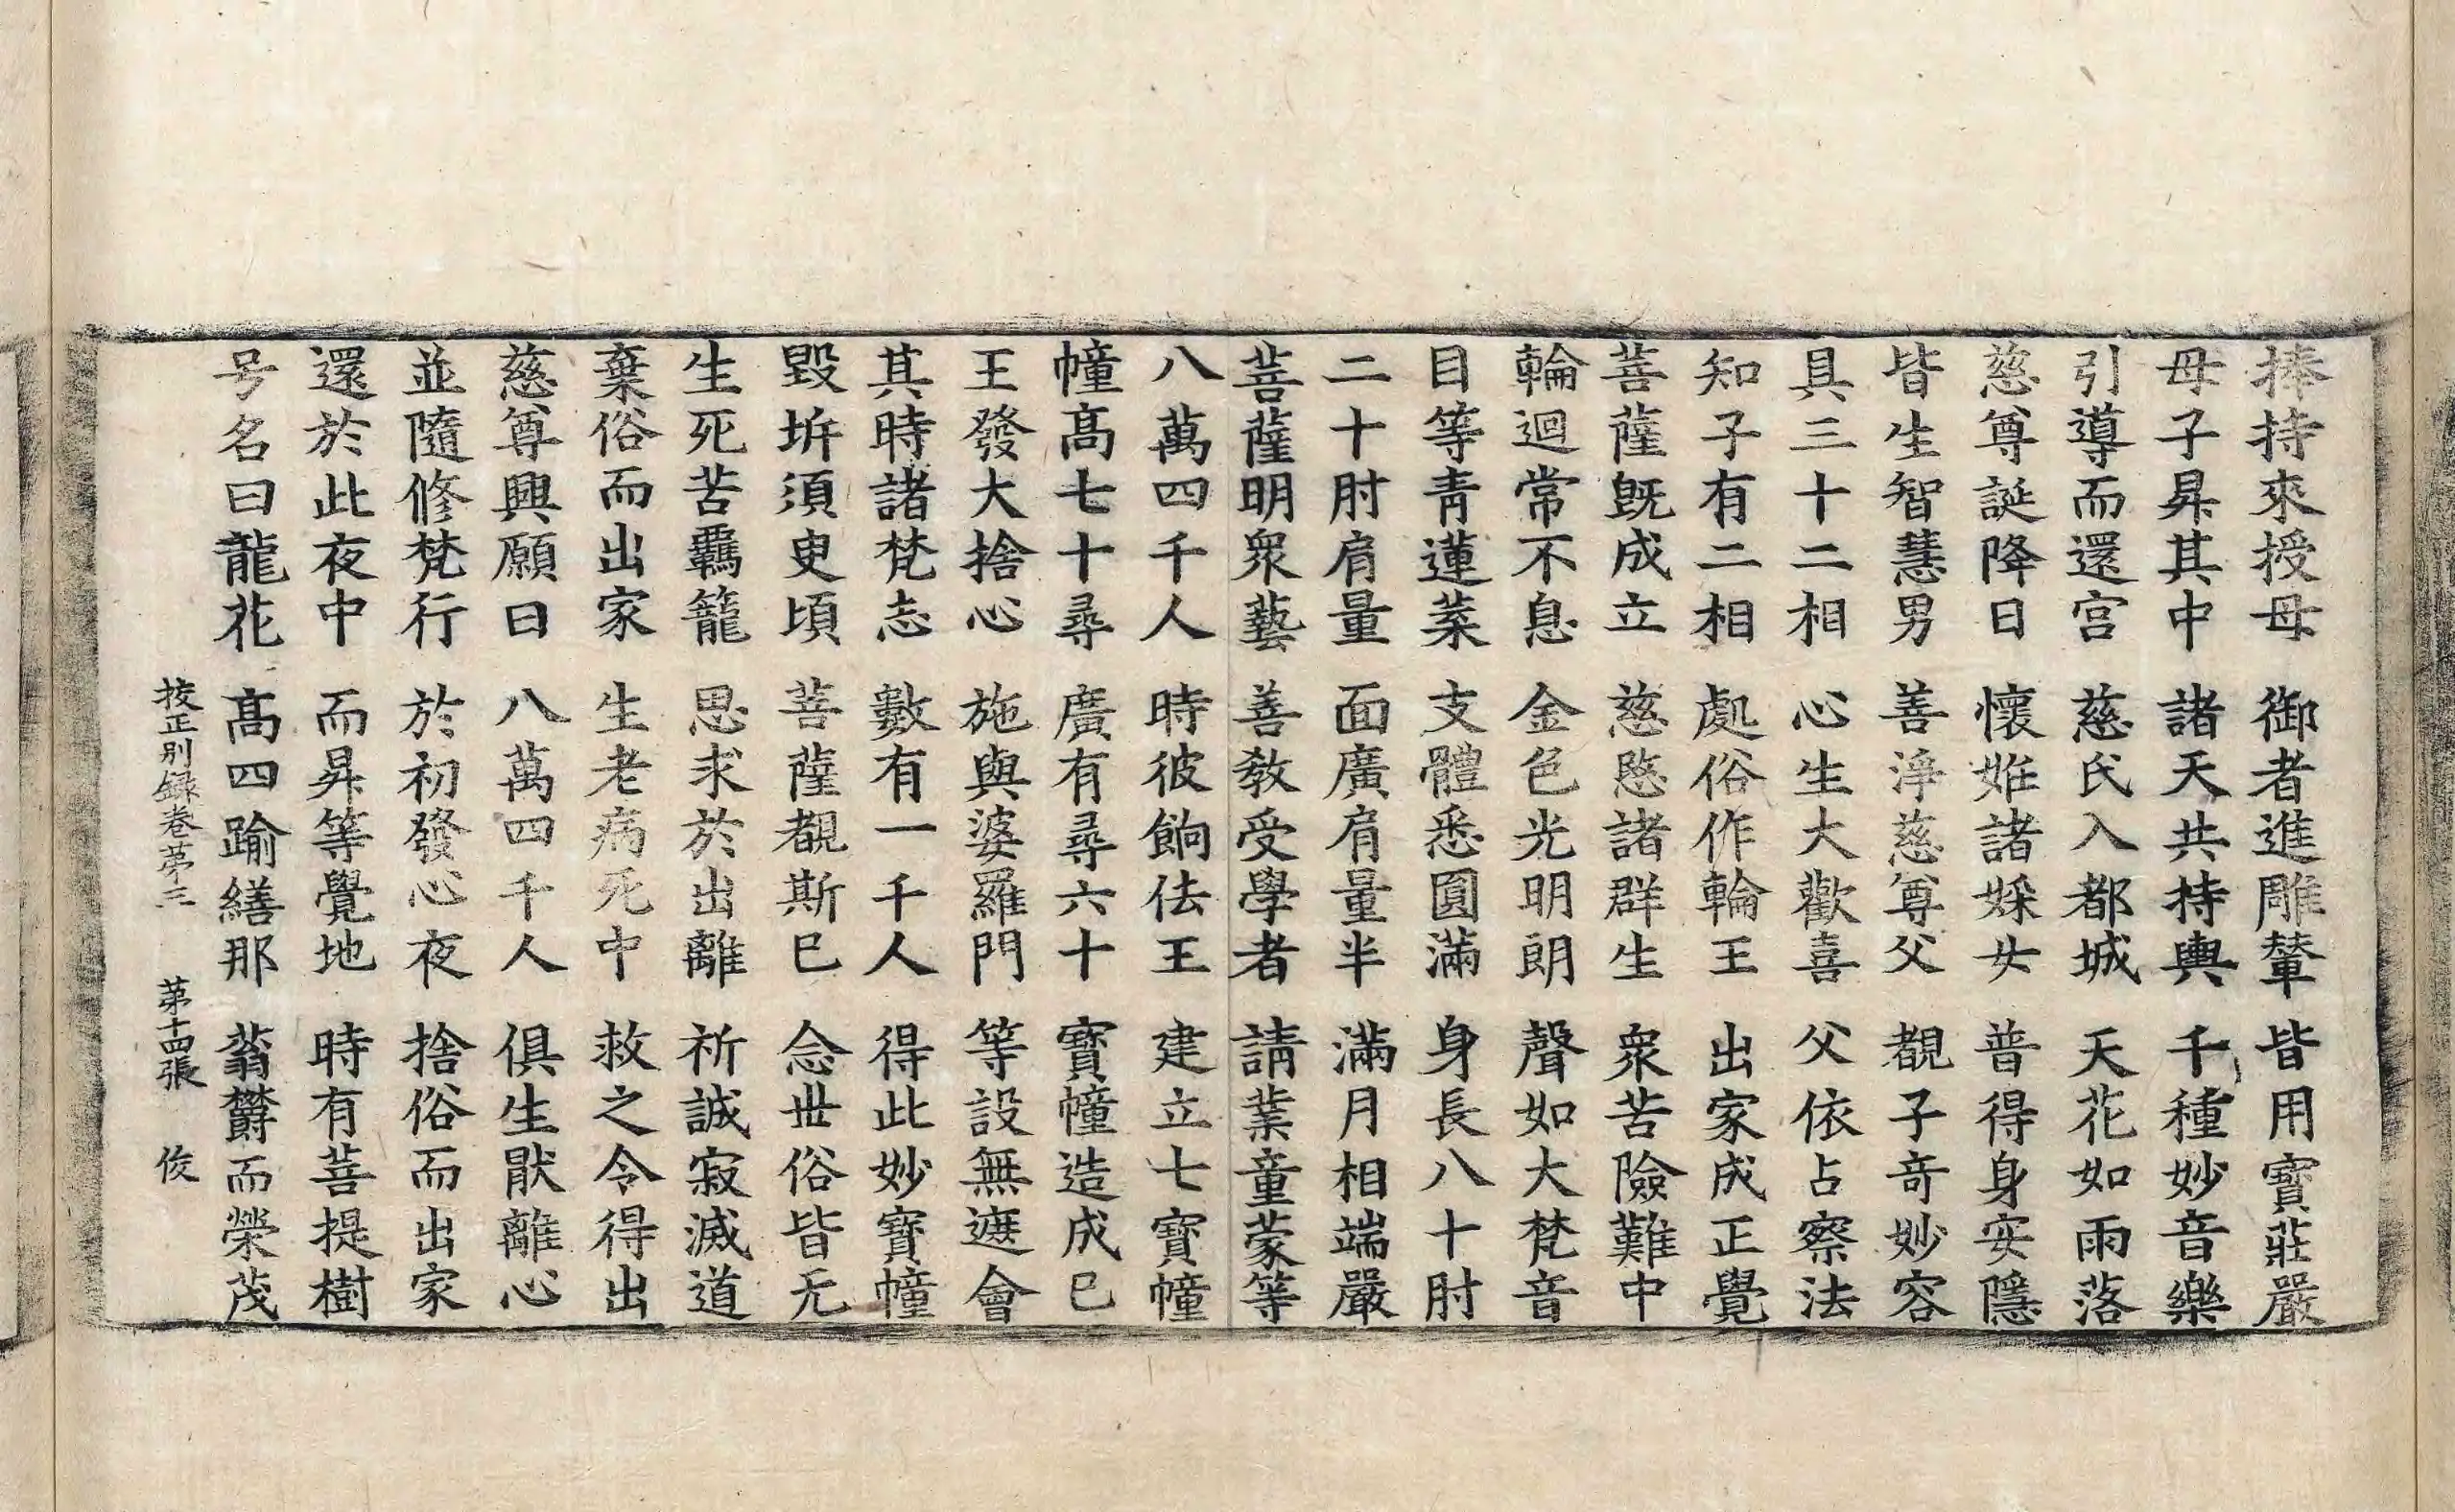 捧持來授母　御者進雕輦　皆用寶莊嚴
母子昇其中　諸天共持輿　千種妙音樂
引導而還宮　慈氏入都城　天花如雨落
慈尊誕降日　懷姙諸婇女　普得身安隱
皆生智慧男　善淨慈尊父　覩子奇妙容
具三十二相　心生大歡喜　父依占察法
知子有二相　處俗作輪王　出家成正覺
菩薩旣成立　慈愍諸群生　衆苦險難中
輪迴常不息　金色光明朗　聲如大梵音
目等青蓮葉　支體悉圓滿　身長八十肘
二十肘肩量　面廣肩量半　滿月相端嚴
菩薩明衆藝　善教受學者　請業童蒙等
八萬四千人　時彼餉佉王　建立七寶幢
幢髙七十尋　廣有尋六十　寶幢造成已
王發大捨心　施與婆羅門　等設無遮會
其時諸梵志　數有一千人　得此妙寶幢
毀坼須臾頃　菩薩覩斯已　念世俗皆无
生死苦羈籠　思求於出離　祈誠寂滅道
棄俗而出家　生老病死中　救之令得出
慈尊興願日　八萬四千人　俱生猒離心
並隨修梵行　於初發心夜　捨俗而出家
還於此夜中　而昇等覺地　時有菩提樹
号名曰龍花　髙四踰繕那　蓊欝而榮茂
挍正別録卷苐三　苐十四張　俊